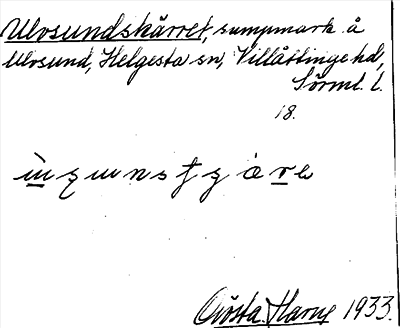 Ulvsundskärret, sumpmark å
Ulvsund, Helgesta sn, Villåttinge hd,
Sörml. l.
18.
Gösta Harne 1933.